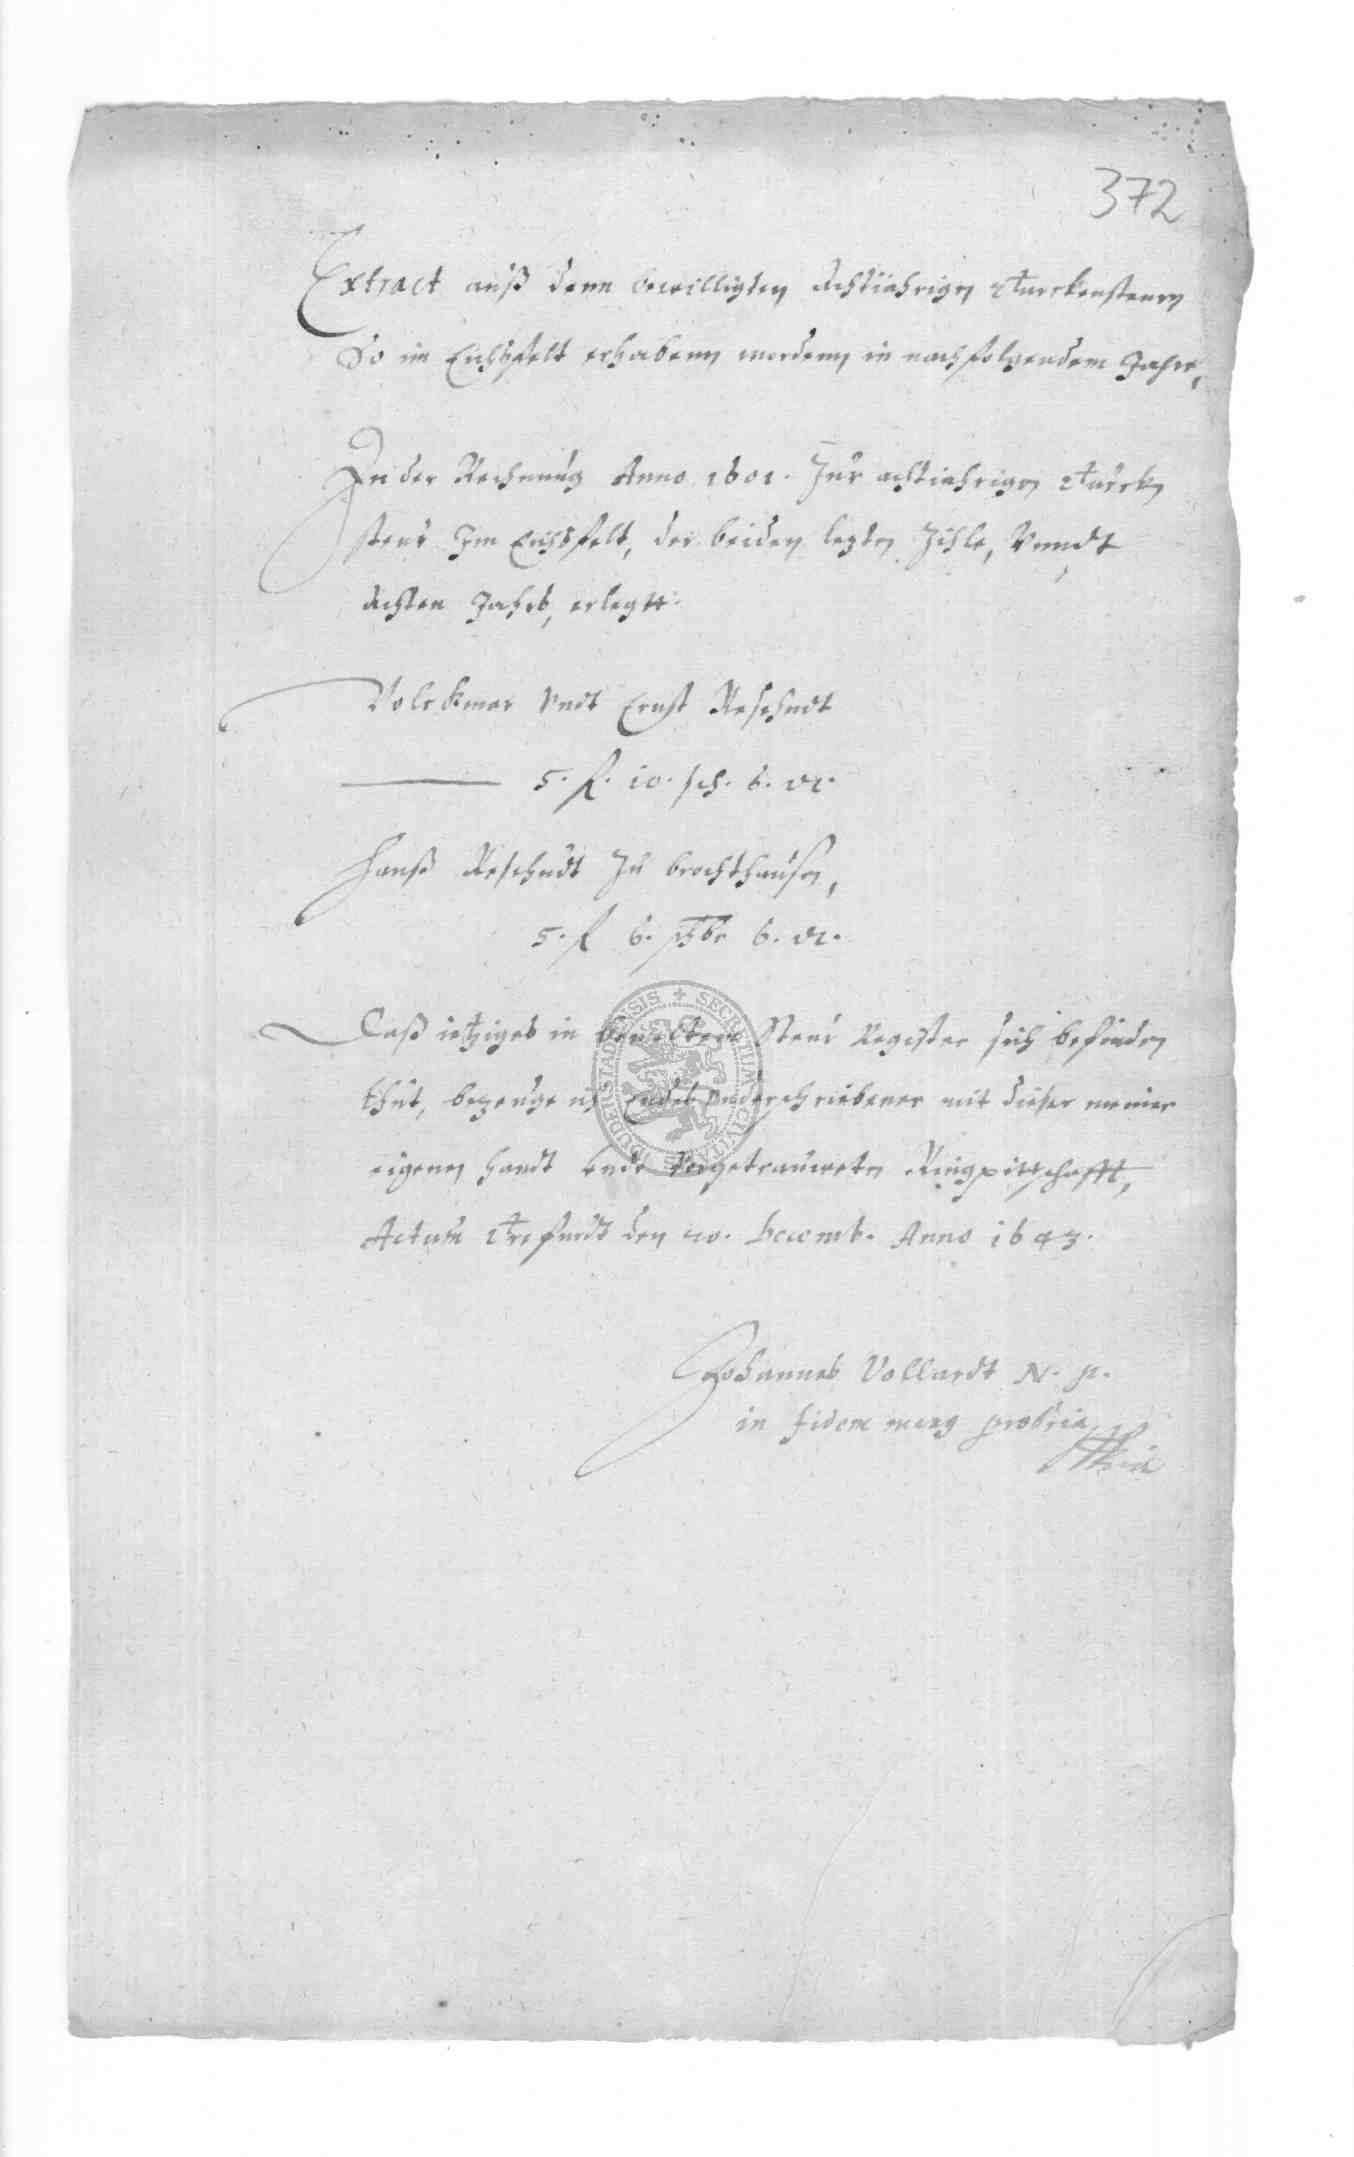 372
Extract auß denn bewilligten Achtiährigen Türckensteuern
So im Eichsfelt erhabenn wordenn in nachfolgendem Jahre,
In der Rechnung Anno 1601. Zur achtiahrigen Türcken
steur Im Eichsfelt, der beiden letzten Zihle, Vnndt
Achten Jahrs, erlegtt.
Volckmar Vndt Ernst Reschudt
5. fl. 10. sch. 6. d.
Hanß Reschudt Zu brochthausen,
5. fl 6. ßbr 6. d.
Daß ietziges in Steur Register sich befinden
thut, bezeuge ich Endts Underschriebener mit dieser meiner
eigenen handt undt Ringpittschafft,
Actum Trefurdt den 20. Decemb. Anno 1643.
Johannes Vollardt N. P.
in fidem propria
SECRETUM CIVITATIS DUDERSTADENSIS